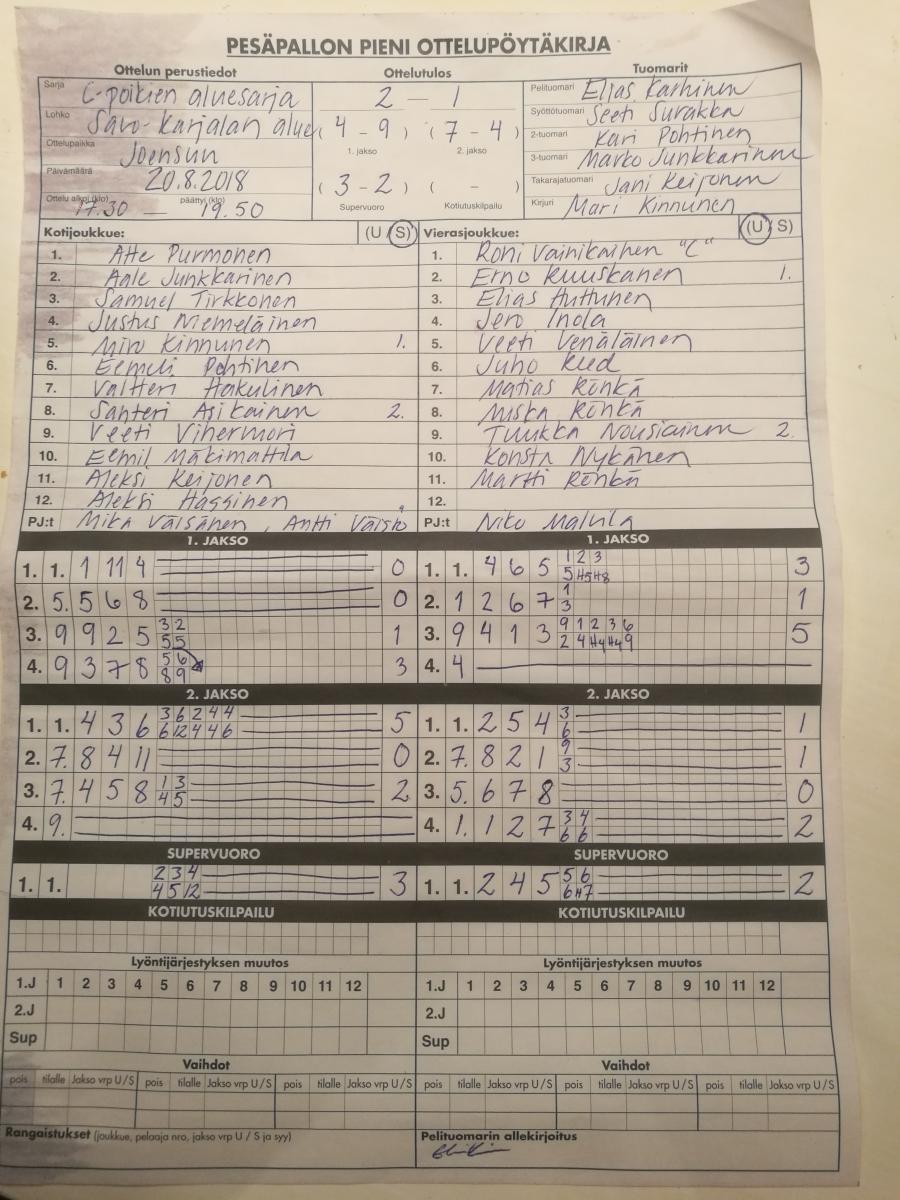 PESÄPALLON PIENI OTTELUPÖYTÄKIRJA
Ottelun perustiedot Ottelutulos Tuomarit
Sarja C-poikien aluesarja 2 - 1 Pelituomari Elias Karhinen
Lohko Savo-Karjalan alue (4 - 9) (7 - 4) Syöttötuomari Seeti Surakka
1. jakso 2. jakso 2-tuomari Kari Pohtinen
Ottelupaikka Joensuu 3-tuomari Marko Junkkarinen
Päivämäärä 20.8.2018 (3 - 2) ( - ) Takarajatuomari Jani Keijonen
Ottelu alkoi (klo) 17.30 — päättyi (klo) 19.50 Supervuoro Kotiutuskilpailu Kirjuri Mari Kinnunen
Kotijoukkue: (U S) Vierasjoukkue: (U S)
1. Atte Purmonen 1. Roni Vainikainen "C"
2. Aale Junkkarinen 2. Erno Kuuskanen 1.
3. Samuel Tirkkonen 3. Elias Huttunen
4. Justus Niemeläinen 4. Jero Inola
5. Miro Kinnunen 1. 5. Veeti Venäläinen
6. Eemeli Pohtinen 6. Juho
7. Valtteri Hakulinen 7. Matias Rönkä
8. Santeri Asikainen 2. 8. Miska Rönkä
9. Veeti Vihermori 9. Tuukka Nousiainen 2.
10. Eemil Mäkimattila 10. Konsta Nykänen
11. Aleksi Keijonen 11. Martti Rönkä
12. Aleksi Hassinen 12.
PJ:t Mika Väisänen, Antti PJ:t Niko
1. JAKSO 1. JAKSO
1. 1. 1 11 4 0 1. 1. 4 6 5 1 2 3 3
5 H5 H8
2. 5. 5 6 8 0 2. 1 2 6 7 1 1
3
3. 9 9 2 5 3 2 1 3. 9 4 1 3 9 1 2 3 6 5
5 5 2 4 H4 H4 9
4. 9 3 7 8 5 6 3 4. 4
8 9
2. JAKSO 2. JAKSO
1. 1. 4 3 6 3 6 2 4 4 5 1. 1. 2 5 4 3 1
6 12 4 4 6 6
2. 7. 8 4 11 0 2. 7. 8 2 1 9 1
3
3. 7. 4 5 8 1 3 2 3. 5. 6 7 8 0
4 5
4. 9. 4. 1. 1 2 7 3 4 2
6 6
SUPERVUORO SUPERVUORO
1. 1. 2 3 4 3 1. 1. 2 4 5 5 6 2
4 5 12 6 H7
KOTIUTUSKILPAILU KOTIUTUSKILPAILU
Lyöntijärjestyksen muutos Lyöntijärjestyksen muutos
1.J 1 2 3 4 5 6 7 8 9 10 11 12 1.J 1 2 3 4 5 6 7 8 9 10 11 12
2.J 2.J
Sup Sup
Vaihdot Vaihdot
pois tilalle Jakso vrp U/S pois tilalle Jakso vrp U/S pois tilalle Jakso vrp U/S pois tilalle Jakso vrp U/S pois tilalle Jakso vrp U/S pois tilalle Jakso vrp U/S
Rangaistukset (joukkue, pelaaja nro, jakso vrp U / S ja syy) Pelituomarin allekirjoitus